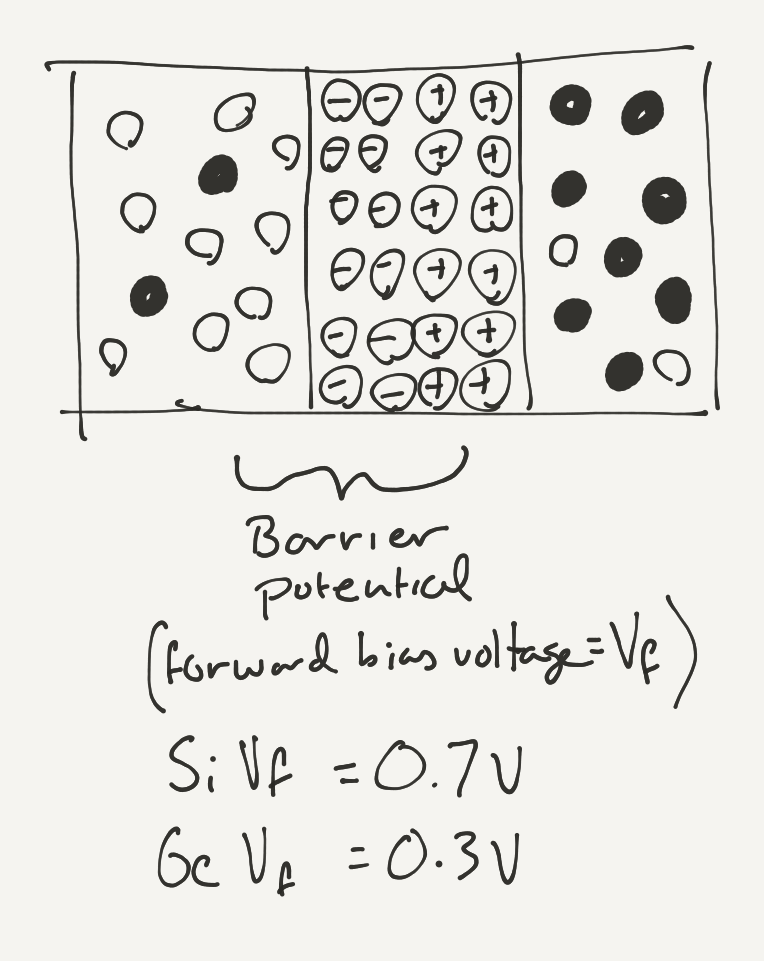 ⊖ ⊖ ⊕ ⊕
⊖ ⊖ ⊕ ⊕
⊖ ⊖ ⊕ ⊕
⊖ ⊖ ⊕ ⊕
⊖ ⊖ ⊕ ⊕
⊖ ⊖ ⊕ ⊕
Barrier
potential
(forward bias voltage = Vf)
Si Vf = 0.7V
Ge Vf = 0.3V